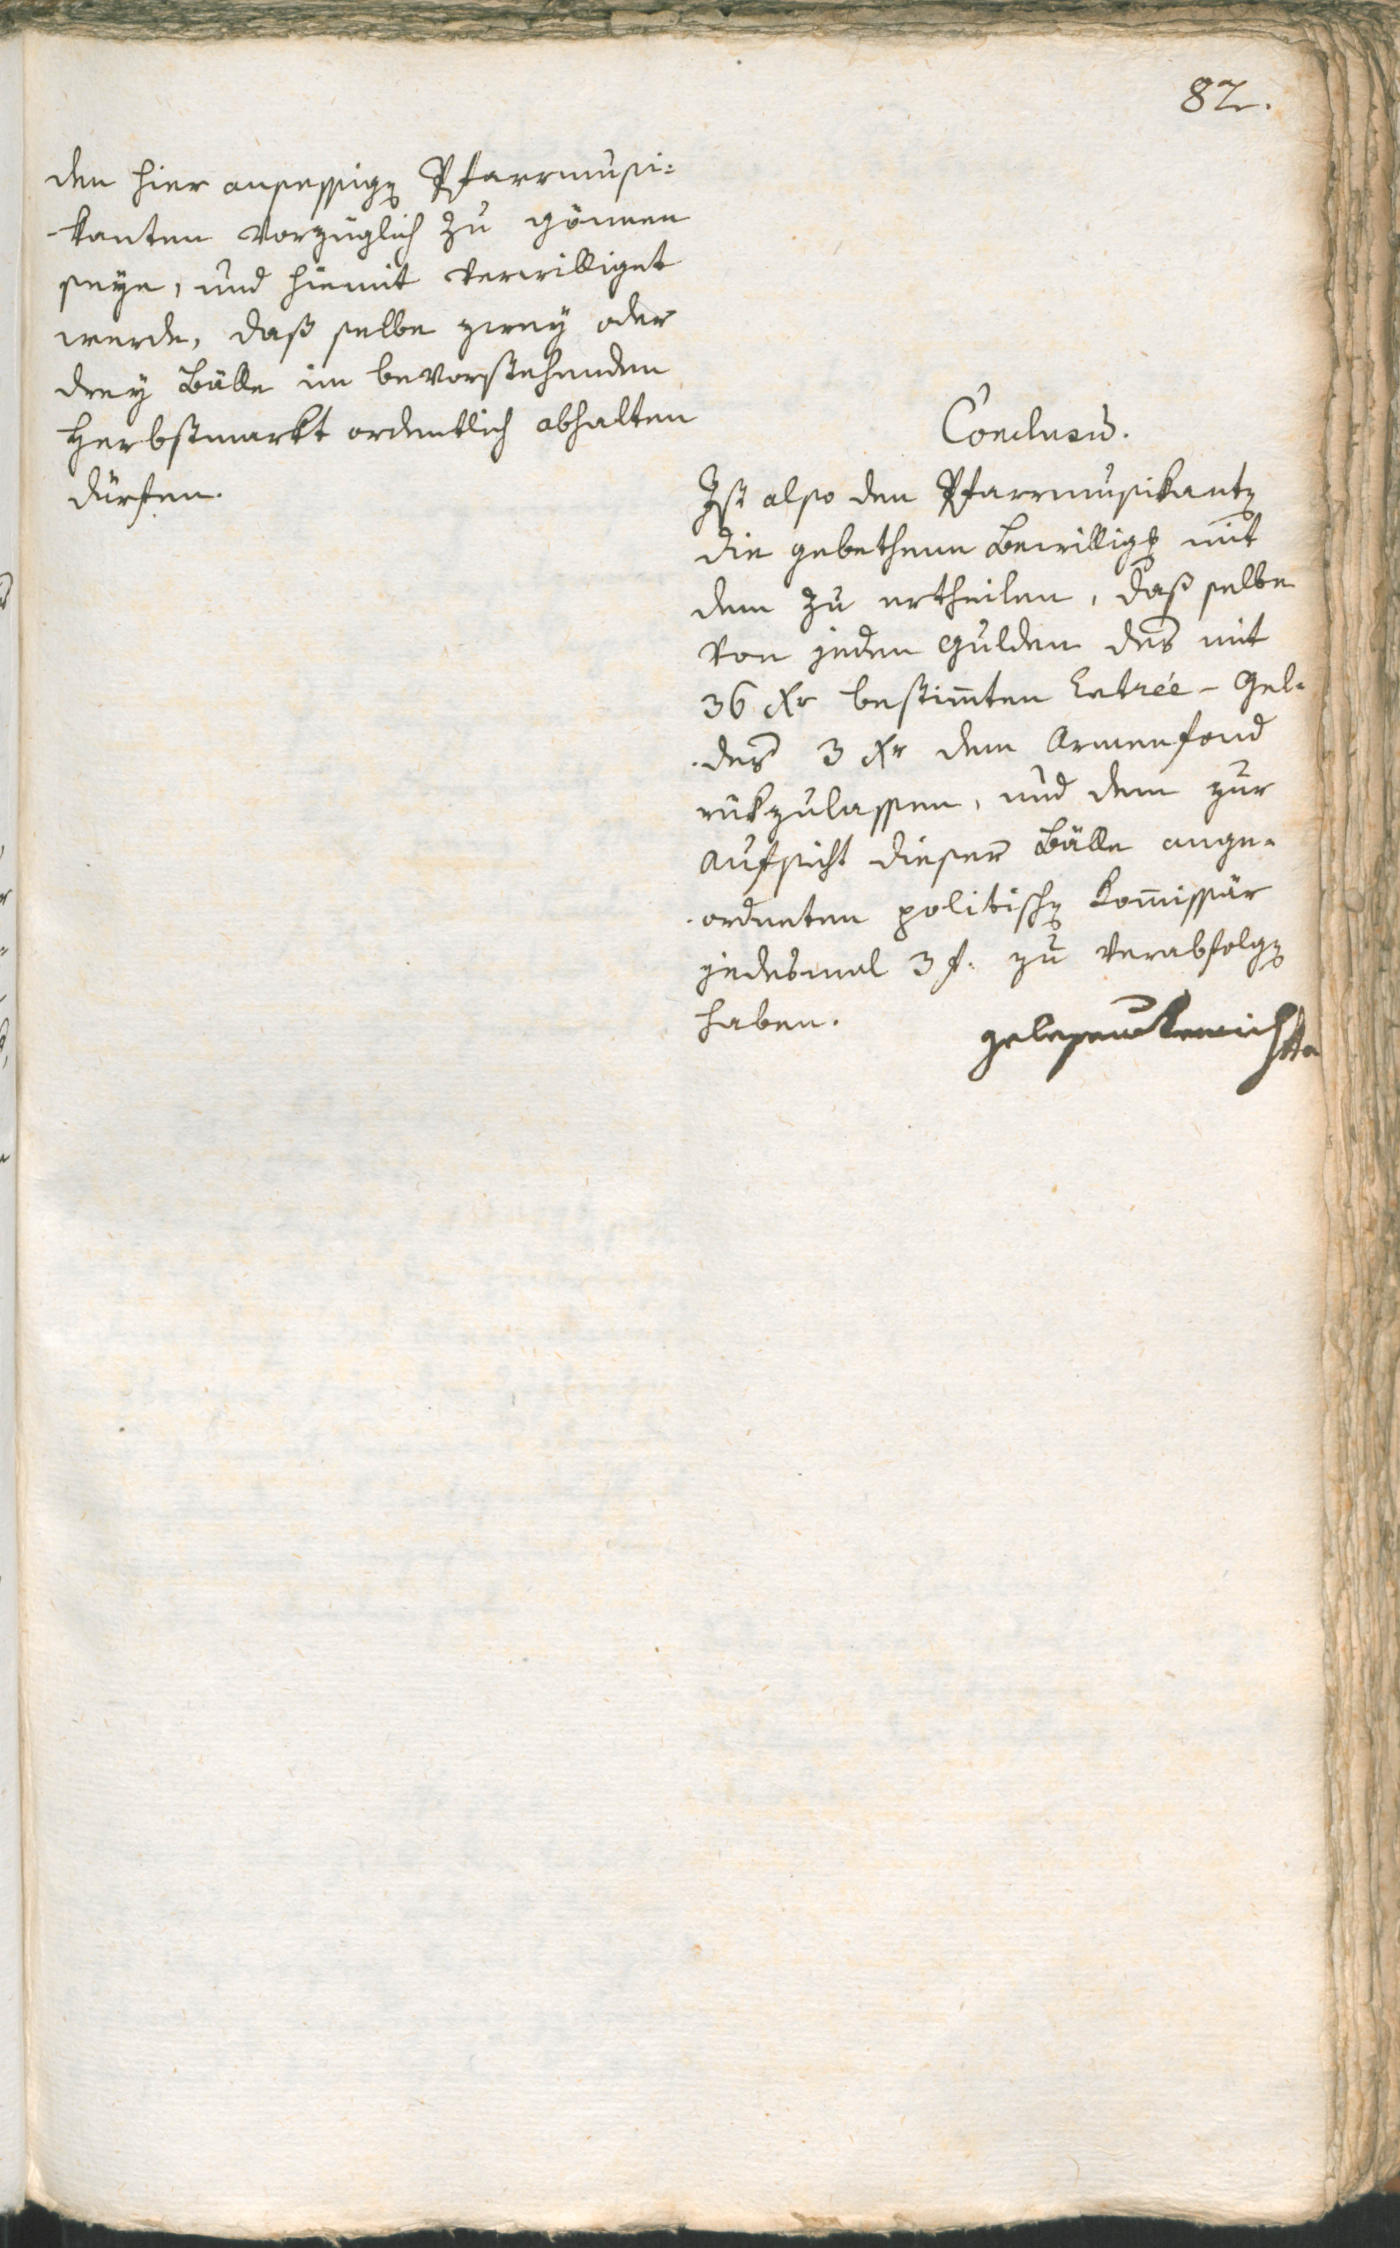 82.
den hier ansessigen Pfarrmusi=
-kanten vorzüglich zu gönnen
seye, und hiemit verwilliget
werde, daß selbe zwey oder
drey Bälle im bevorstehenden
Herbstmarkt ordentlich abhalten
dürfen.
Conclusū.
Ist also den Pfarrmusikanten
die gebethene Bewilligg mit
dem zu ertheilen, daß selbe
von jeden Gulden des mit
36 Xr bestim̄ten Entrée-Gel-
-des 3 Xr dem Armenfond
rükzulassen, und dem zur
Aufsicht dieser Bälle ange-
-ordneten politischen Kom̄issär
jedesmal 3 f. zu verabfolgen
haben.
gelesen